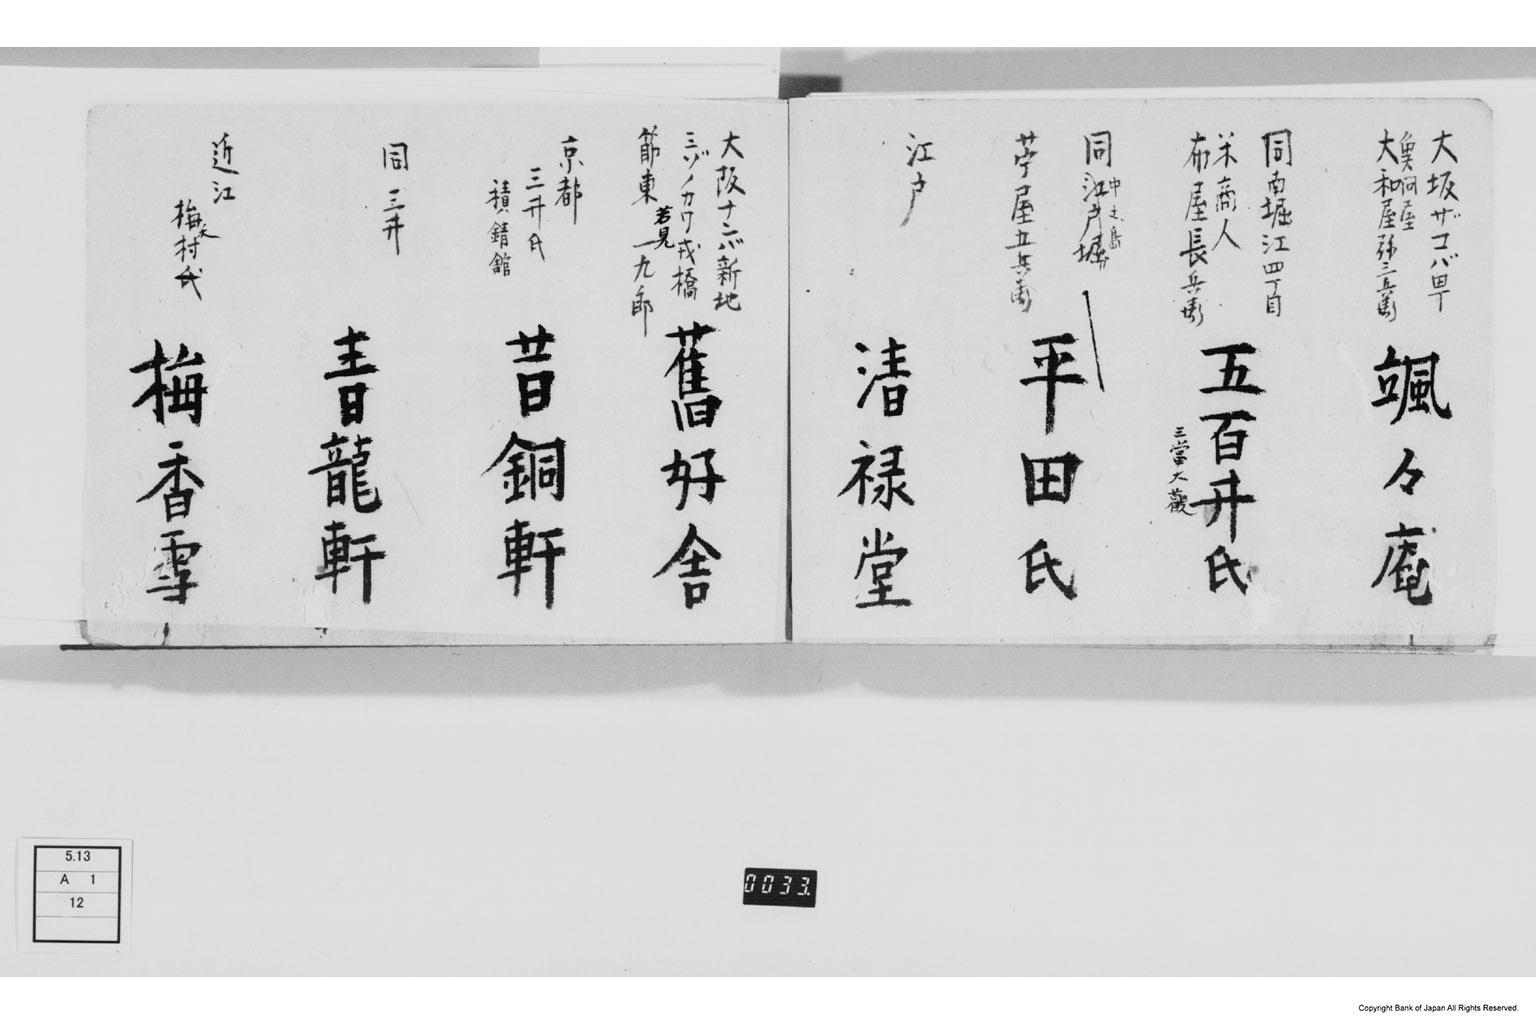 大坂ザコバ四丁
魚問屋
大和屋弥三兵衛
颯々庵
同南堀江四丁目
米商人
布屋長兵衛
五百井氏
三當大觀
同
中之島
江戸堀
苧屋五兵衛
平田氏
江戸
清禄堂
大阪ナンバ新地
ミゾノカワ戎橋
節東
若見一九郎
舊好舎
京都
三井氏
積錆館
昔銅軒
同三井
青龍軒
近江
梅村氏
梅香雪
5.13
A 1
12
0033.
Copyright Bank of Japan All Rights Reserved.